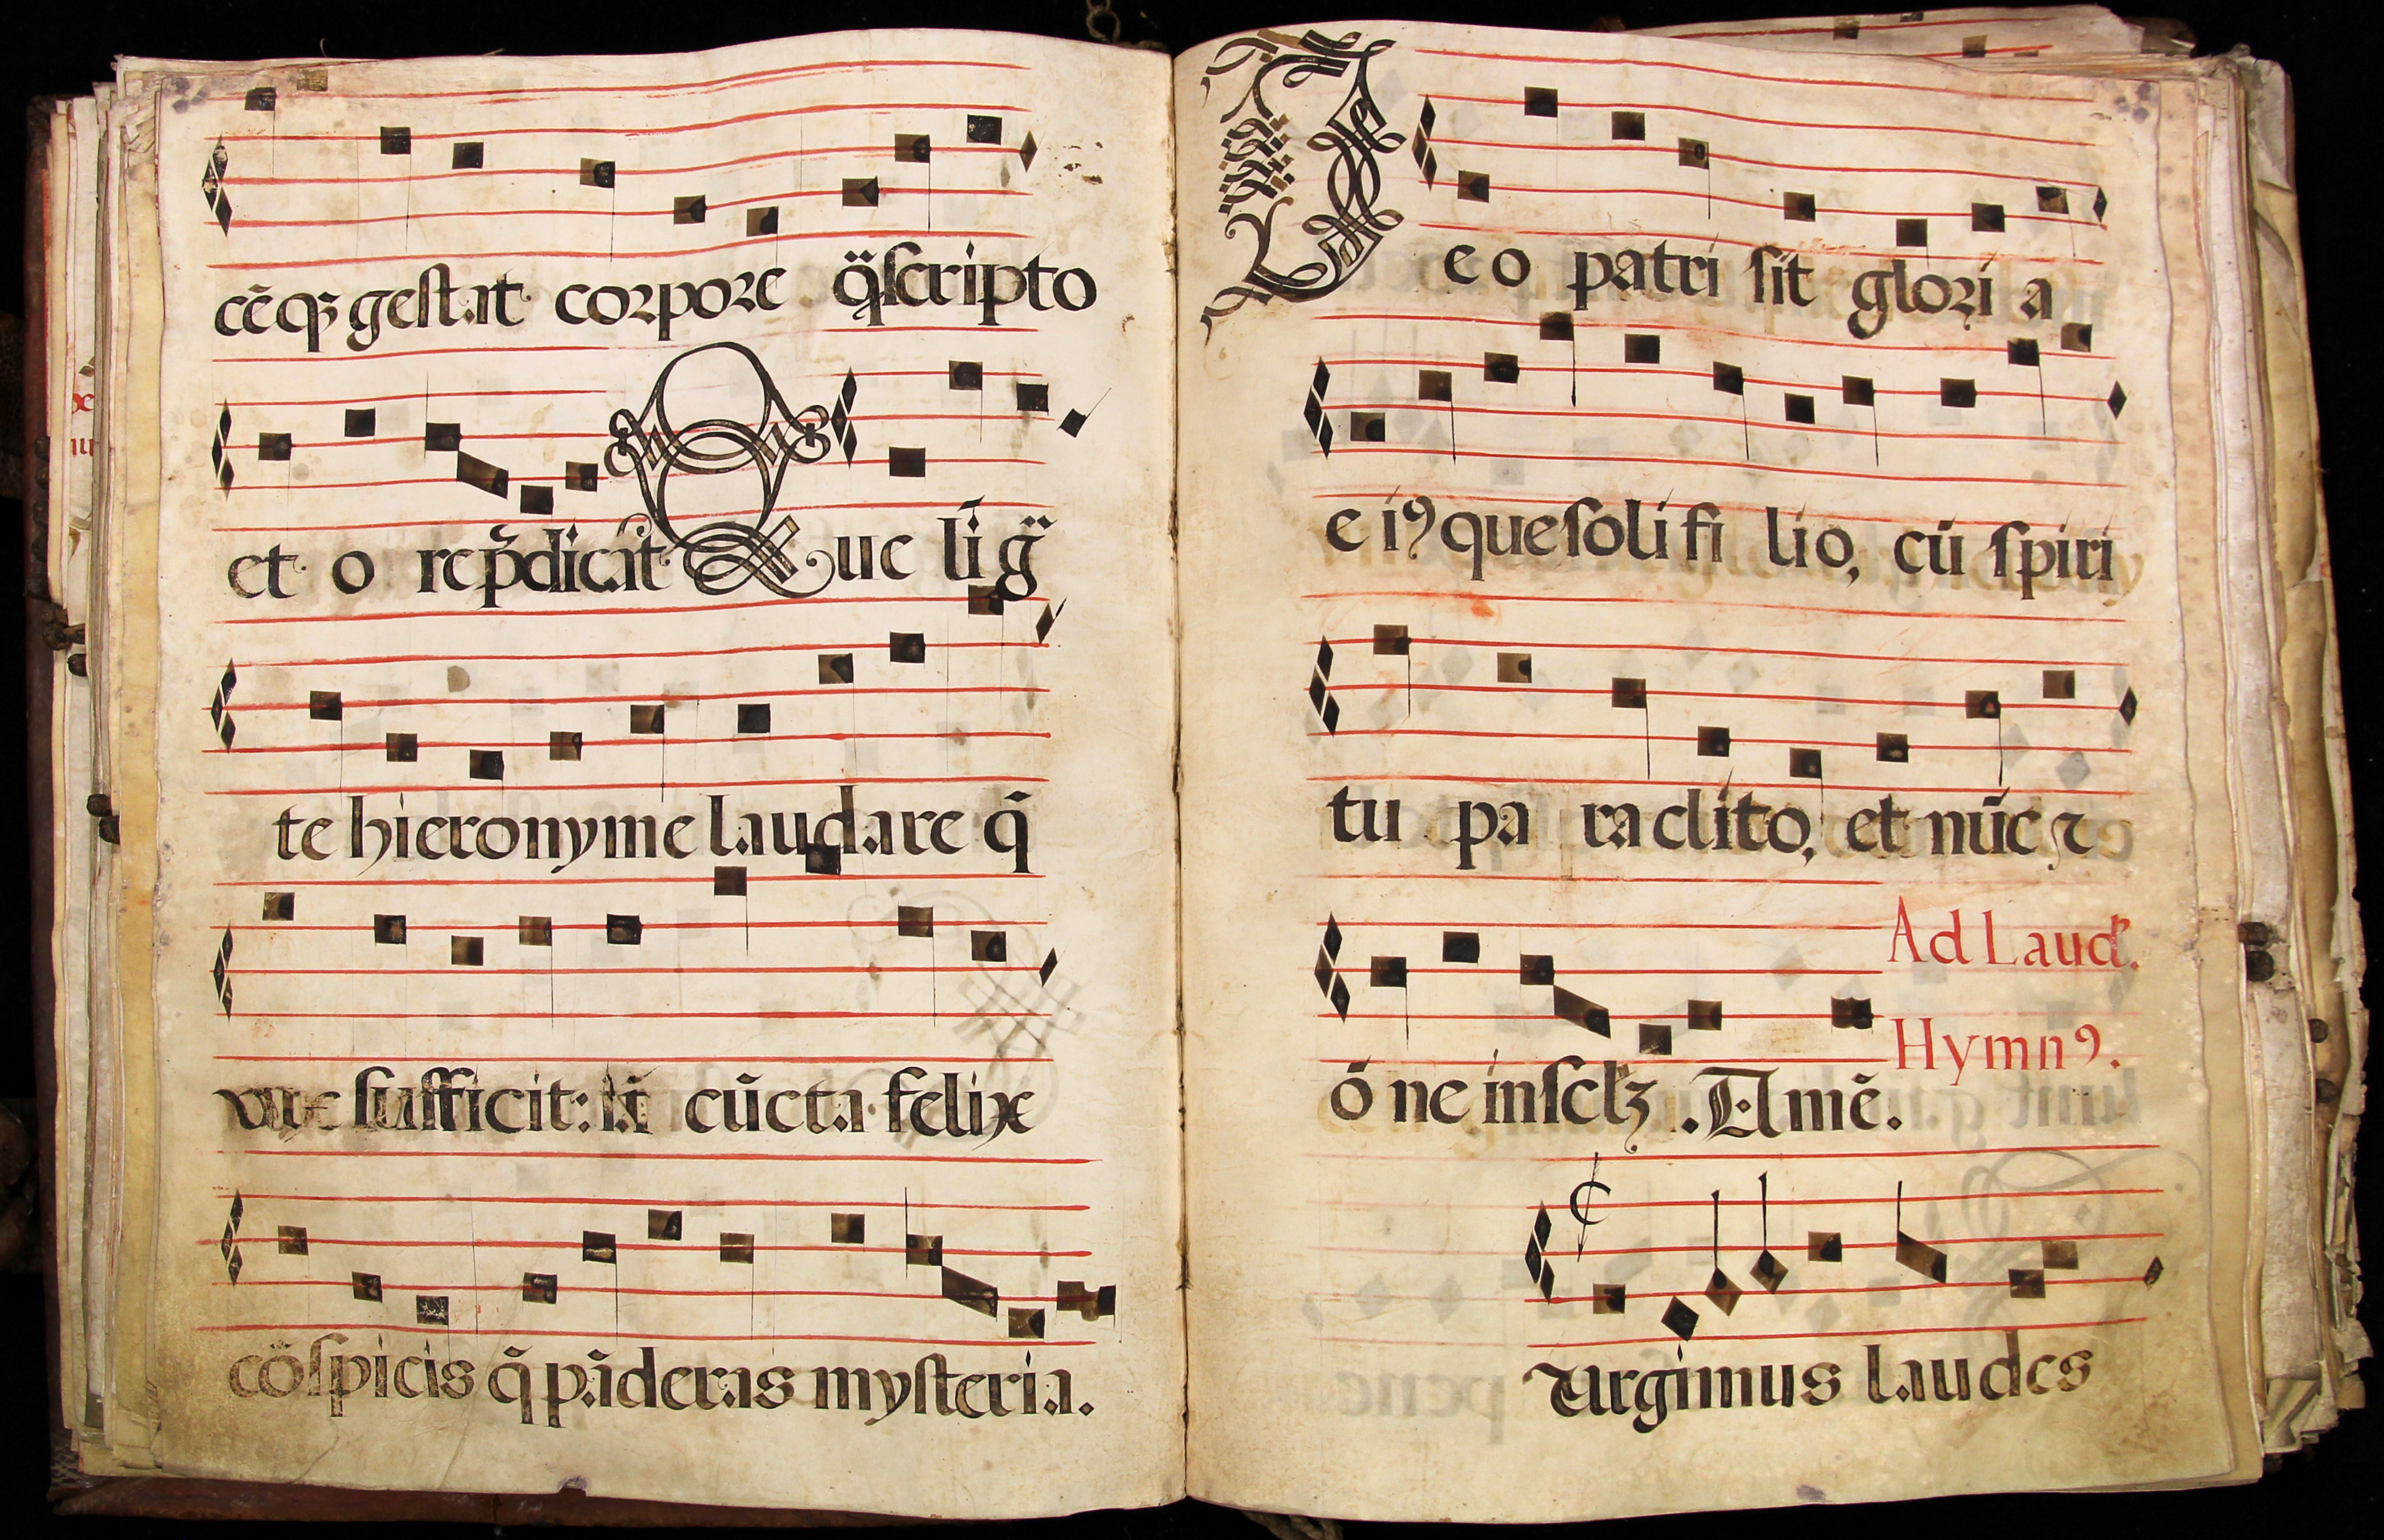 cēqʒ gestat corpore q̈scripto
et o re p̄dicāt Que lig̈
te hieronyme laudare q̄
sufficit: cūcta felix
cōspicis q̄ pāderas mysteria.
Deo patri sit gloria
eiꝰque soli filio, cū spiri
tu paraclito, et nūc ⁊
Ad Laud.
Hymnꝰ.
ōne in sclʒ. Amē.
Turgimus laudes